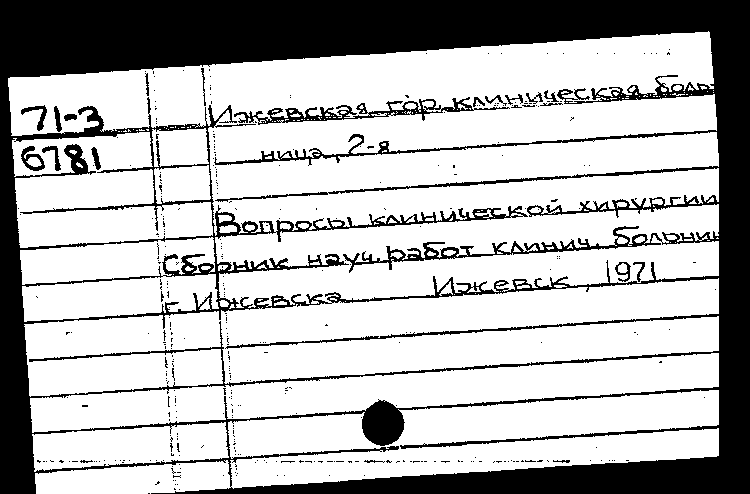 71-3
6781
Ижевская гор. клиническая боль-
ница, 2-я
Вопросы клинической хирургии
Сборник науч. работ клинич. больниц
г. Ижевска Ижевск, 1971